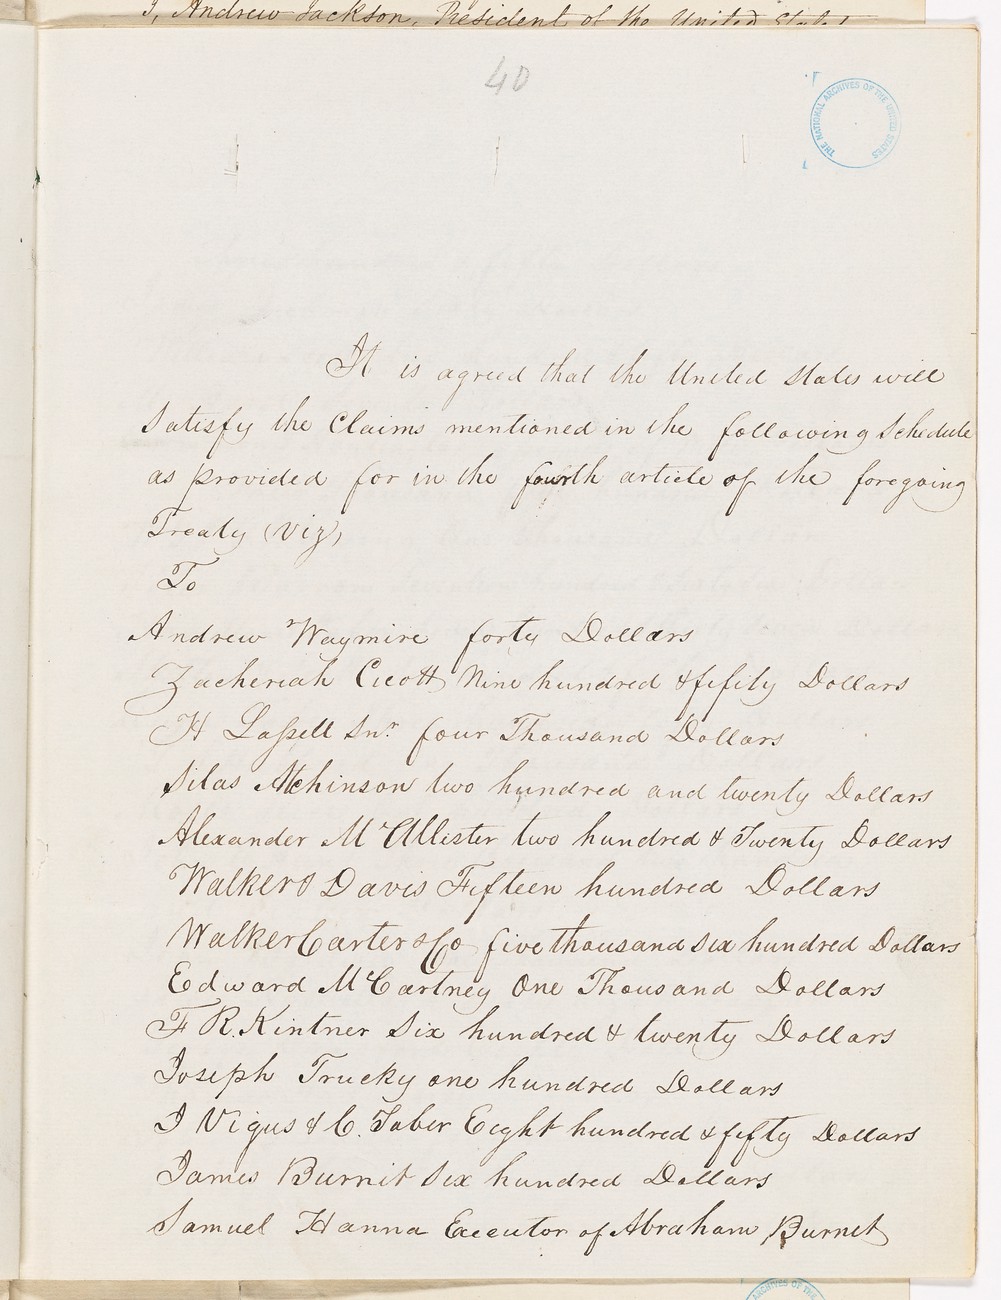 I, Andrew Jackson, President of the United States
40
THE NATIONAL ARCHIVES OF THE UNITED STATES
It is agreed that the United States will
Satisfy the Claims mentioned in the following Schedule
as provided for in the fourth article of the foregoing
Treaty (viz)
To
Andrew Waymire forty Dollars
Zacheriah Cicott Nine hundred & fifity Dollars
H Lassell Snr. four Thousand Dollars
Silas Atchinson two hundred and twenty Dollars
Alexander McAllister two hundred & Twenty Dollars
Walker & Davis Fifteen hundred Dollars
Walker Carter & Co five thousand six hundred Dollars
Edward McCartney One Thousand Dollars
F R. Kintner Six hundred & twenty Dollars
Joseph Trucky one hundred Dollars
J Vigus & C. Taber Eight hundred & fifty Dollars
James Burnit Six hundred Dollars
Samuel Hanna Executor of Abraham Burnet
ARCHIVES OF THE